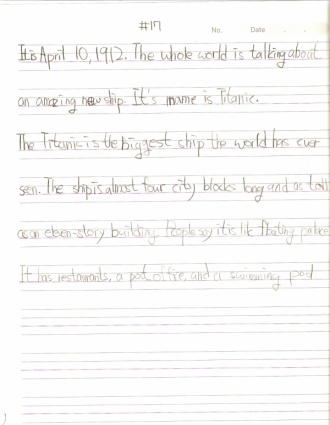 #17
No. Date
It is April 10, 1912. The whole world is talking about
an amazing new ship. It's name is Titanic.
The Titanic is the biggest ship the world has ever
seen. The ship is almost four city blocks long and as tall
as an eleven-story building. People say it is like floating palace
It has restaurants, a post office, and a swimming pool